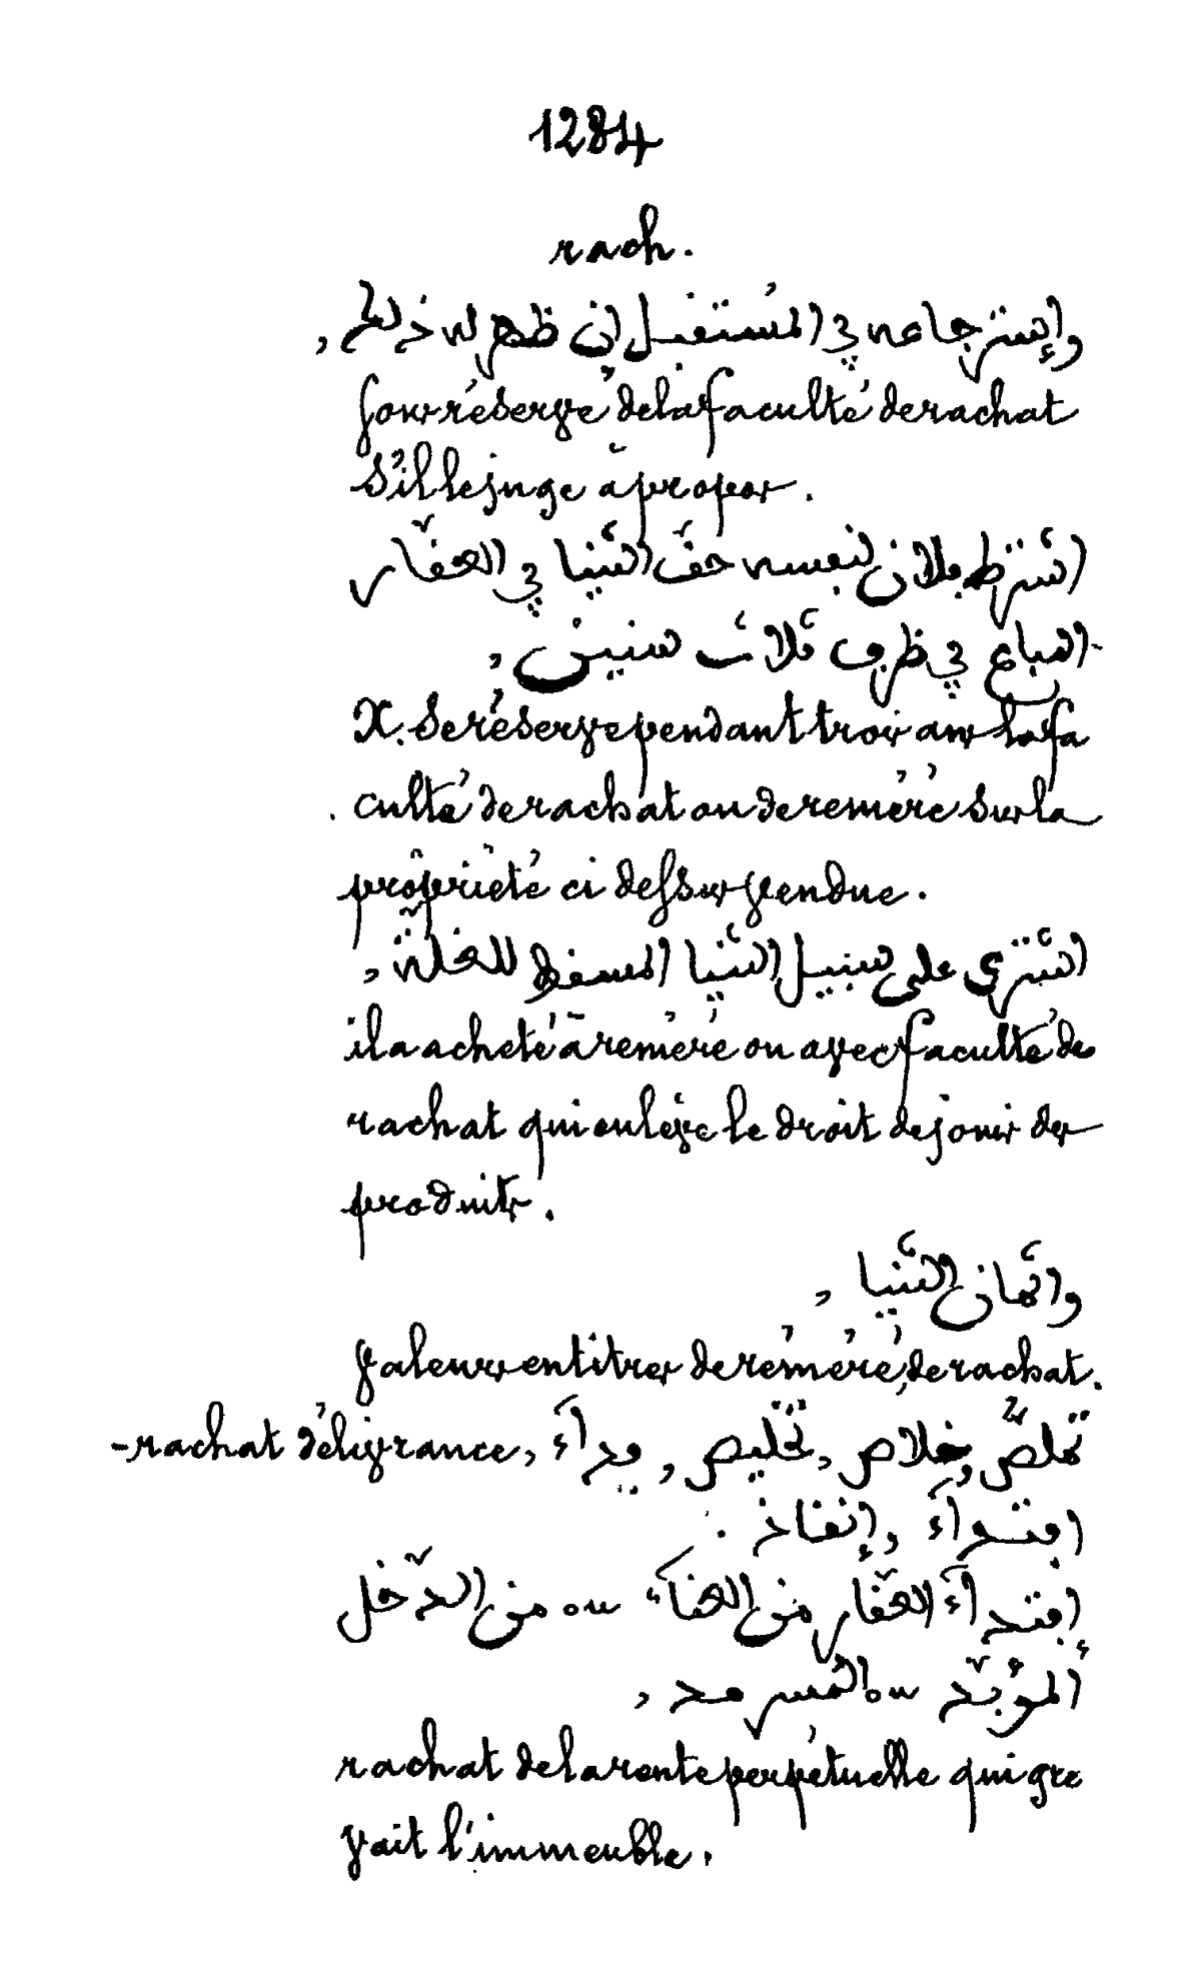 1284
rach.
وإسترجاعه في المُستقبل إن ظهر له ذلك,
sous réserve de la faculté de rachat
s'il le juge à propos.
اشترط فلان لنفسه حقّ الثنيا في العقّار
المباع في ظرف ثلاث سنين,
X. se réserve pendant trois ans la fa
culté de rachat ou de réméré sur la
propriété ci dessus vendue.
اشترى على سبيل الثنيا المسقط للغلّة,
il a acheté à réméré ou avec faculté de
rachat qui enlève le droit de jouir des
produits.
واثمان الثنيا,
valeurs en titres de réméré, de rachat.
-rachat délivrance, تخلّص, خلاص, تخليص, فدآء
افتدآء, إنقاذ.
إفتدآء العقّار من العنآء سه من الدّخل
المؤبّد سه المُسرمد,
rachat de la rente perpétuelle qui gre
vait l'immeuble.